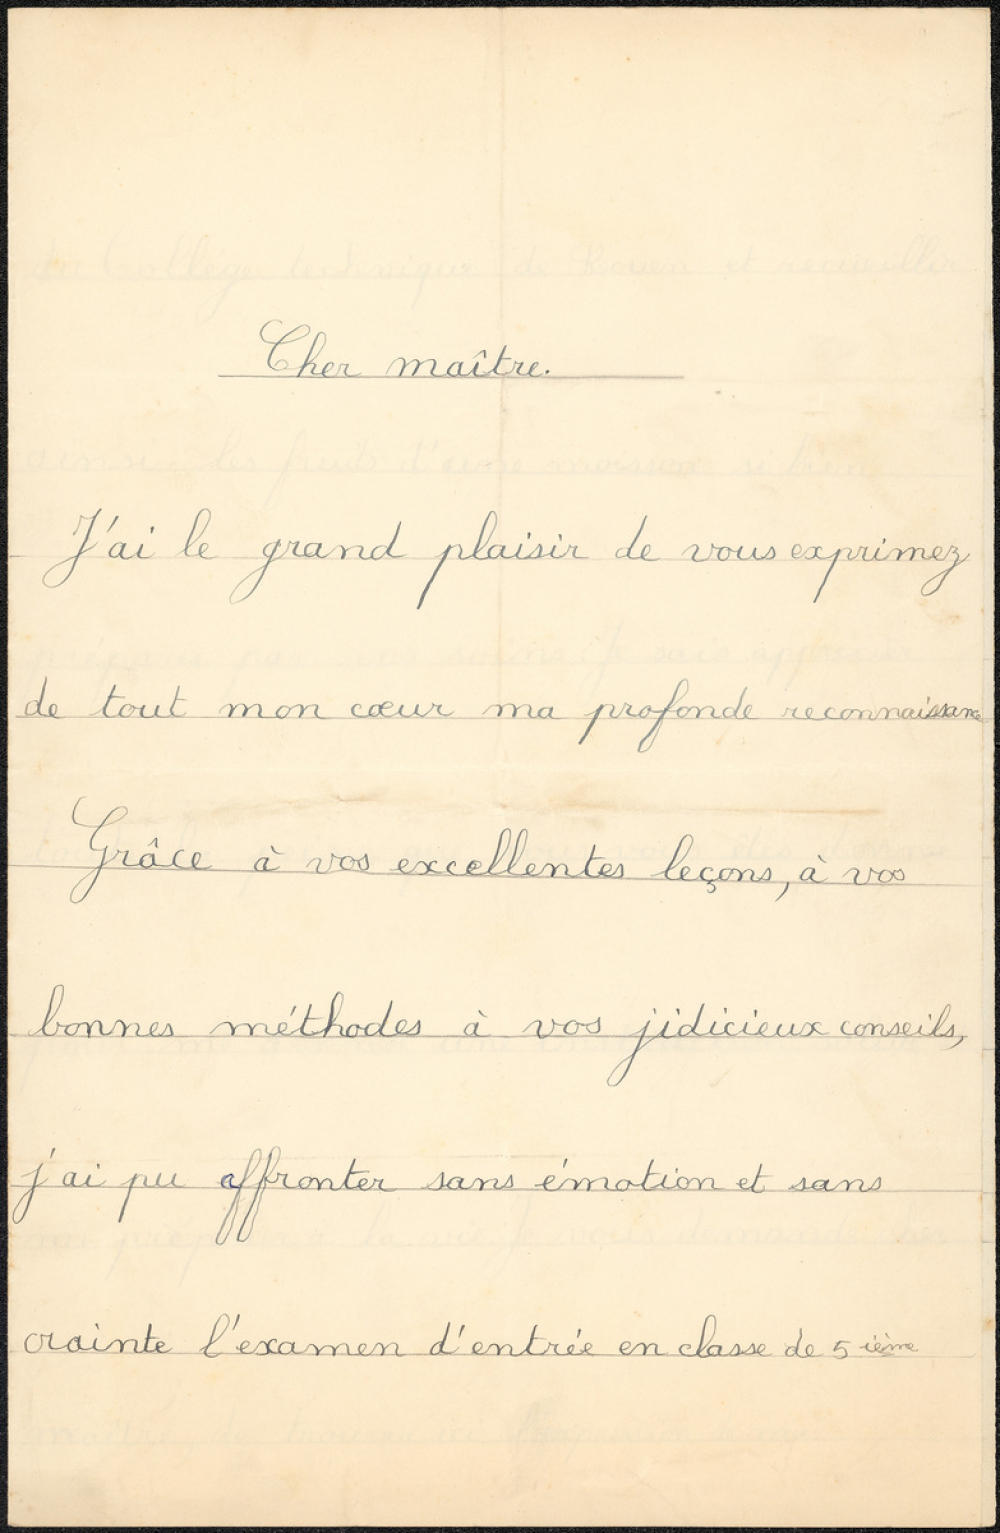 Cher maître.
J'ai le grand plaisir de vous exprimez
de tout mon cœur ma profonde reconnaissance
Grâce à vos excellentes leçons, à vos
bonnes méthodes à vos jidicieux conseils,
j'ai pu affronter sans émotion et sans
crainte l'examen d'entrée en classe de 5 ième